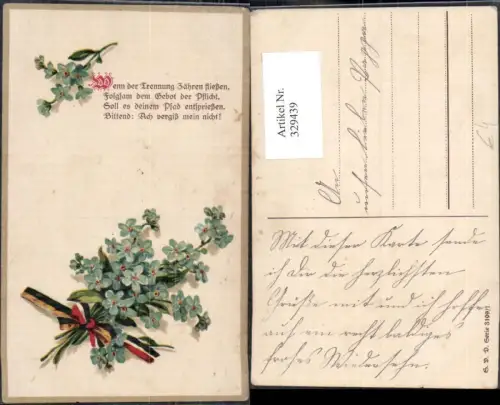 Wenn der Trennung Zähren fließen,
Folgsam dem Gebot der Pflicht,
Soll es deinem Pfad entsprießen,
Bittend: Ach vergiß mein nicht!
Artikel Nr.
329439
An
meinen lieben Pappa
64
Mit dieser Karte sende
ich Dir die herzlichsten
Grüße mit und ich hoffe
auf ein recht baldiges
frohes Wiedersehn.
Serie 3109/1